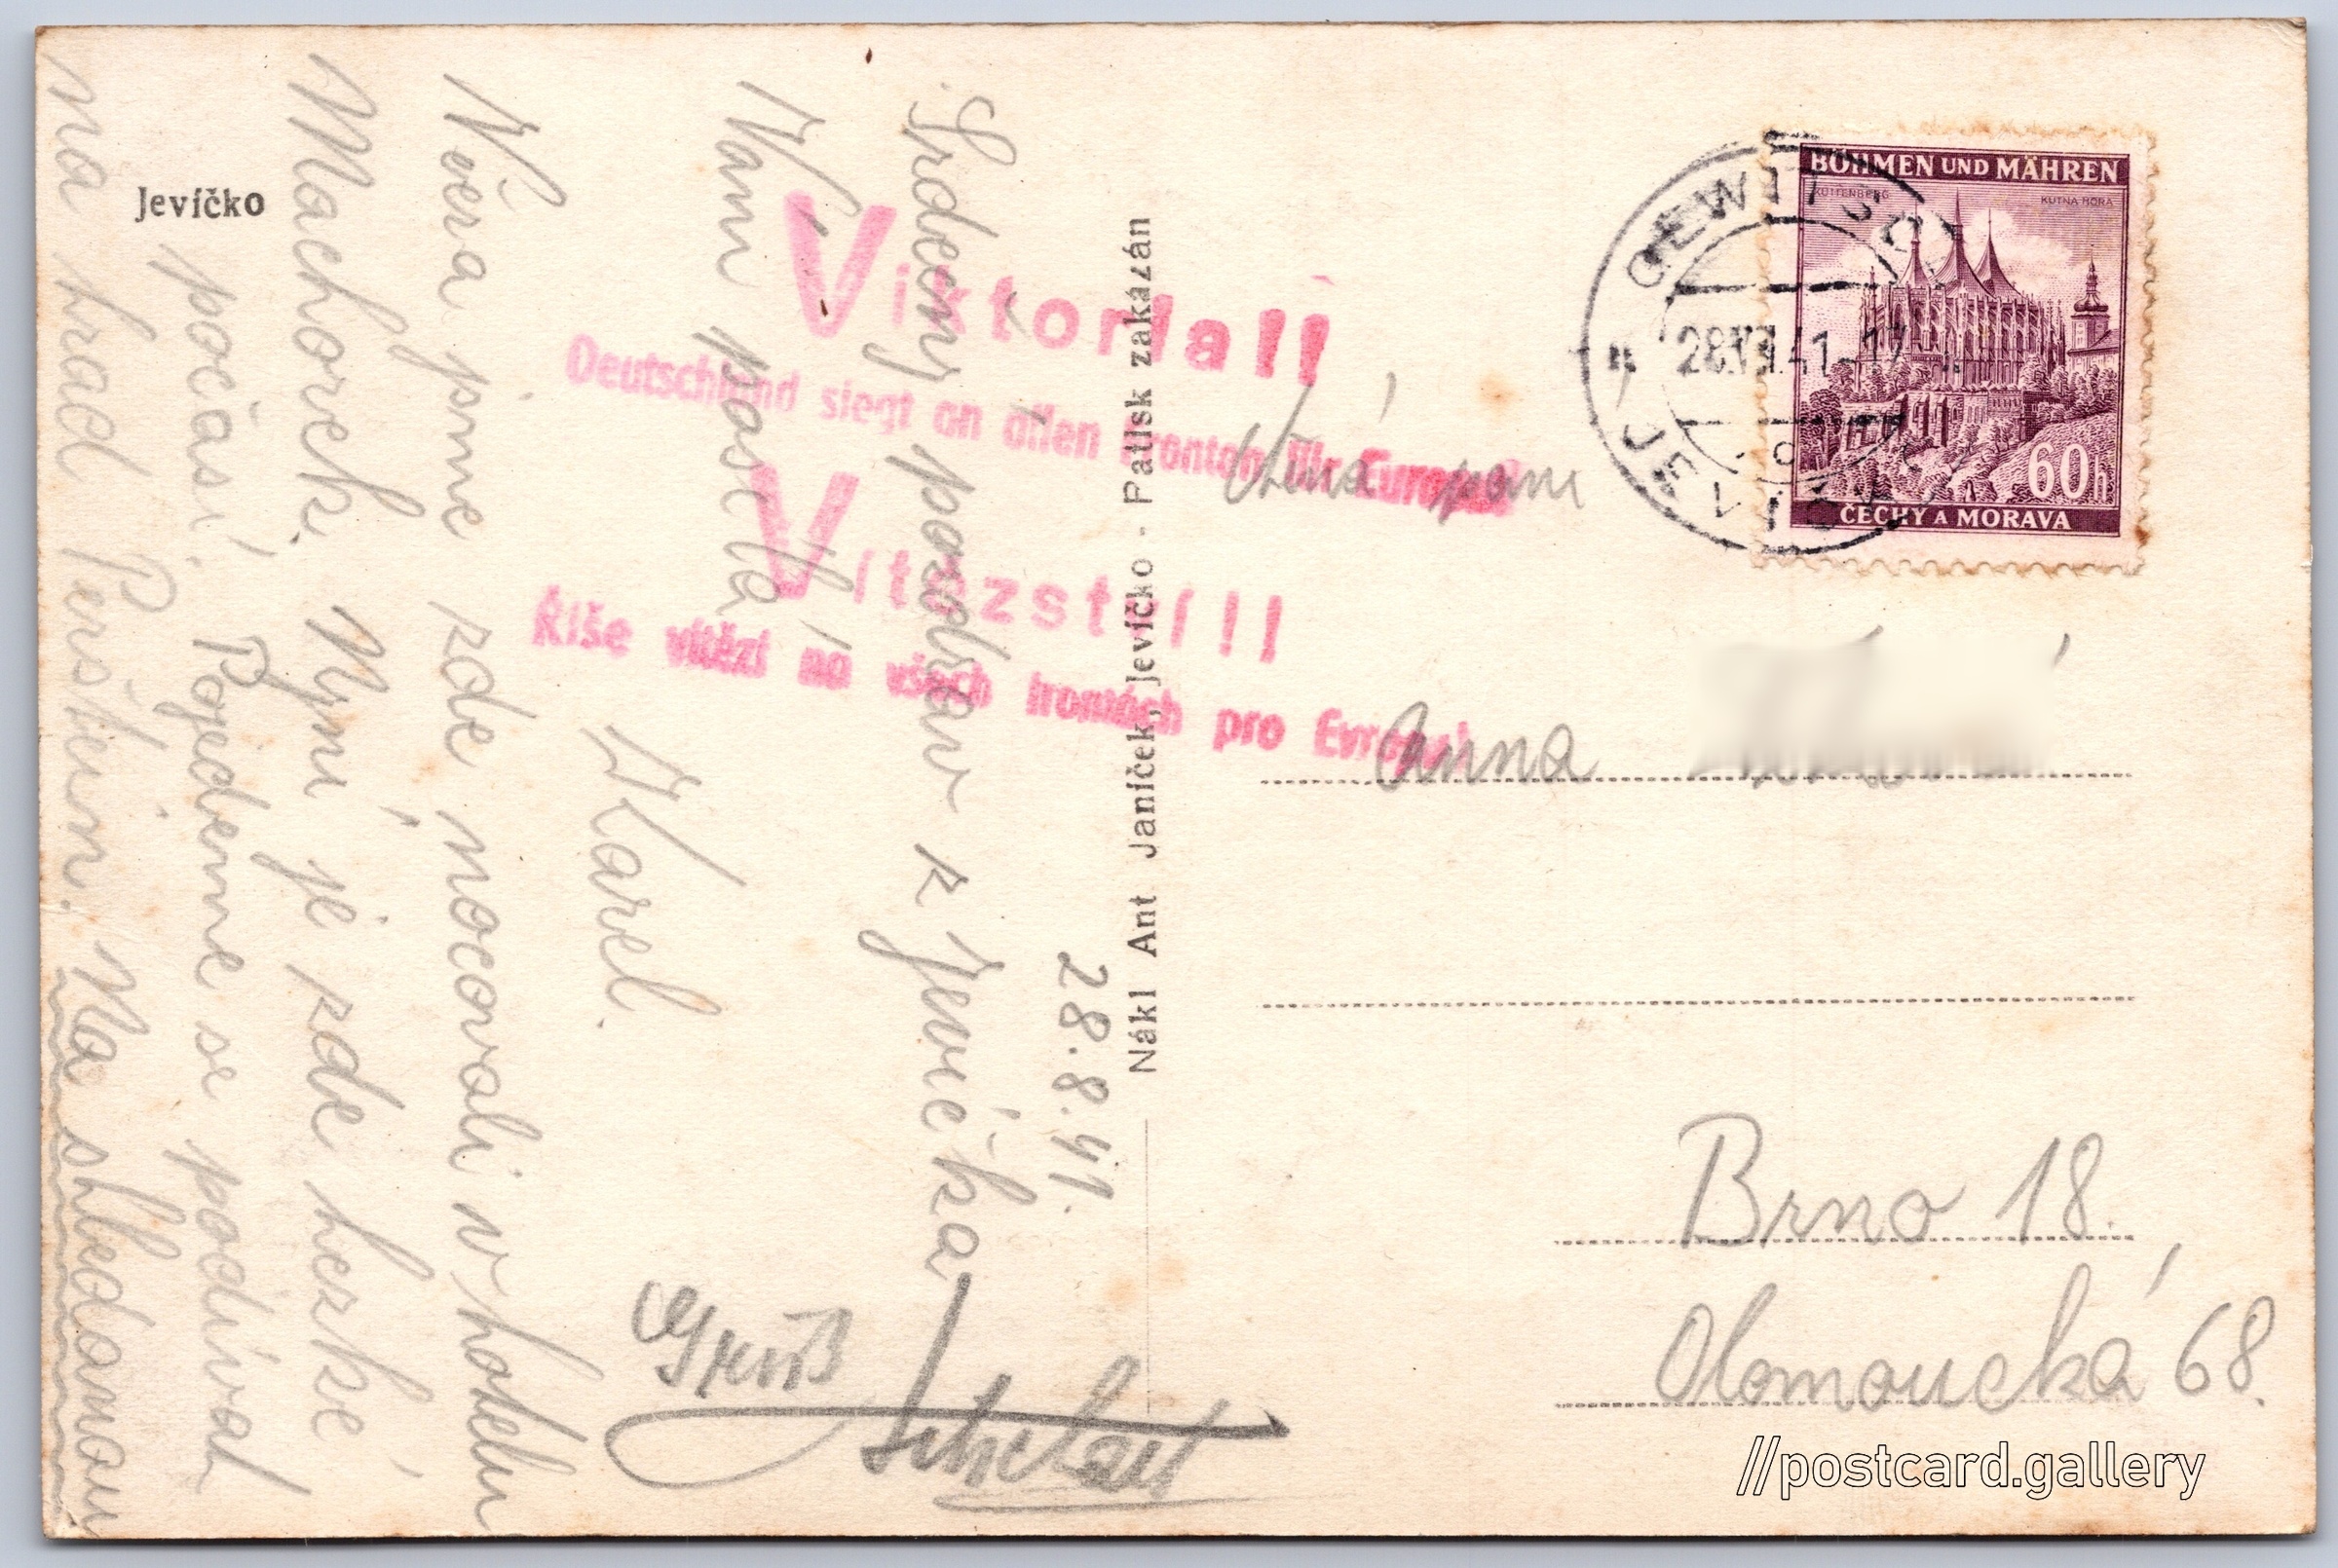 Jevíčko
28.8.41.
Srdečný pozdrav z Jevíčka
Vám posílá
Karel.
Včera jsme zde nocovali v hotelu
Machovek. Nyní je zde hezké
počasí. Pojedeme se podívat
na hrad Perštein. Na shledanou
Gruß
Viktoria!!
Deutschland siegt an allen Fronten für Europa!
Vítězství!!
Říše vítězí na všech frontách pro Evropu!
Nákl Ant Janíček, Jevíčko - Patisk zakázán
BÖHMEN UND MÄHREN
KUTTENBERG
KUTNÁ HORA
60h
ČECHY A MORAVA
GEWITSCH
28.VIII.41-17
JEVÍČKO
paní
Anna
Brno 18.
Olomoucká 68.
//postcard.gallery